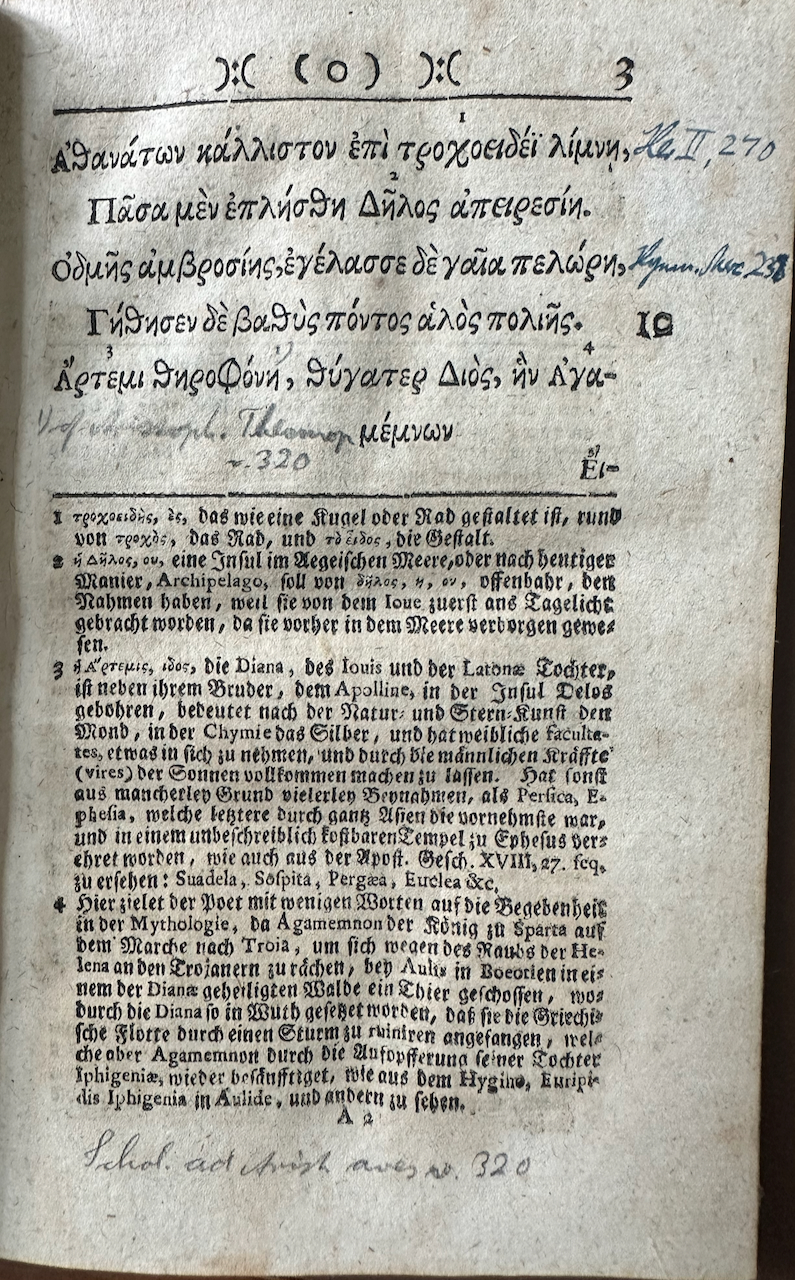 ):( (0) ):( 3
Ἀθανάτων κάλλιστον ἐπὶ τροχοειδέϊ λίμνῃ, II, 270
Πᾶσα μὲν ἐπλήσθη Δῆλος ἀπειρεσίη.
Ὀδμῆς ἀμβροσίης, ἐγέλασσε δὲ γαῖα πελώρη,
Γήθησεν δὲ βαθὺς πόντος ἁλὸς πολιῆς. 10
Ἄρτεμι θηροφόνη, θύγατερ Διὸς, ἣν Ἀγα-
μέμνων
v. 320
Εἴ-
1 τροχοειδὴς, ὲς, das wie eine Kugel oder Rad gestaltet ist, rund
von τροχὸς, das Rad, und τὸ εἶδος, die Gestalt.
2 ἡ Δῆλος, ου, eine Insul im Aegeischen Meere, oder nach heutiger
Manier, Archipelago, soll von δῆλος, η, ον, offenbahr, den
Nahmen haben, weil sie von dem Ioue zuerst ans Tagelicht
gebracht worden, da sie vorher in dem Meere verborgen gewe-
sen.
3 ἡ Ἄρτεμις, ιδος, die Diana, des Iouis und der Latonæ Tochter,
ist neben ihrem Bruder, dem Apolline, in der Insul Delos
gebohren, bedeutet nach der Natur- und Stern-Kunst den
Mond, in der Chymie das Silber, und hat weibliche faculta-
tes, etwas in sich zu nehmen, und durch die männlichen Kräffte
(vires) der Sonnen vollkommen machen zu lassen. Hat sonst
aus mancherley Grund vielerley Beynahmen, als Persica, E-
phesia, welche letztere durch gantz Asien die vornehmste war,
und in einem unbeschreiblich kostbaren Tempel zu Ephesus ver-
ehret worden, wie auch aus der Apost. Gesch. XVIII, 27. seq.
zu ersehen: Suadela, Sospita, Pergæa, Euclea &c.
4 Hier zielet der Poet mit wenigen Worten auf die Begebenheit
in der Mythologie, da Agamemnon der König zu Sparta auf
dem Marche nach Troia, um sich wegen des Raubs der He-
lena an den Trojanern zu rächen, bey Aulis in Boeotien in ei-
nem der Dianæ geheiligten Walde ein Thier geschossen, wo-
durch die Diana so in Wuth gesetzet worden, daß sie die Griechi-
sche Flotte durch einen Sturm zu ruiniren angefangen, wel-
che aber Agamemnon durch die Aufopfferung seiner Tochter
Iphigeniæ, wieder besänfftiget, wie aus dem Hygino, Euripi-
dis Iphigenia in Aulide, und andern zu sehen.
A 2
Schol. ad Arist aves v. 320